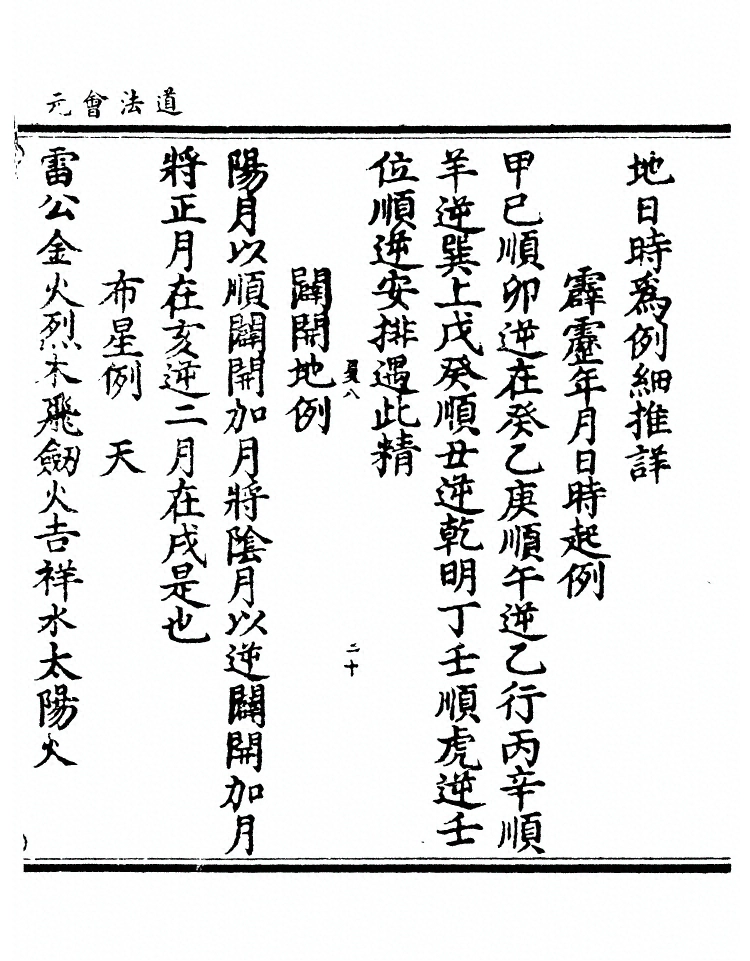 道法會元
地日時爲例細推詳
霹靂年月日時起例
甲巳順卯逆在癸乙庚順午逆乙行丙辛順
羊逆巽上戊癸順丑逆乾明丁壬順虎逆壬
位順逆安排遇此精
夏八
二十
闢開地例
陽月以順闢開加月將陰月以逆闢開加月
將正月在亥逆二月在戌是也
布星例　天
雷公金火烈木飛劔火吉祥水太陽火